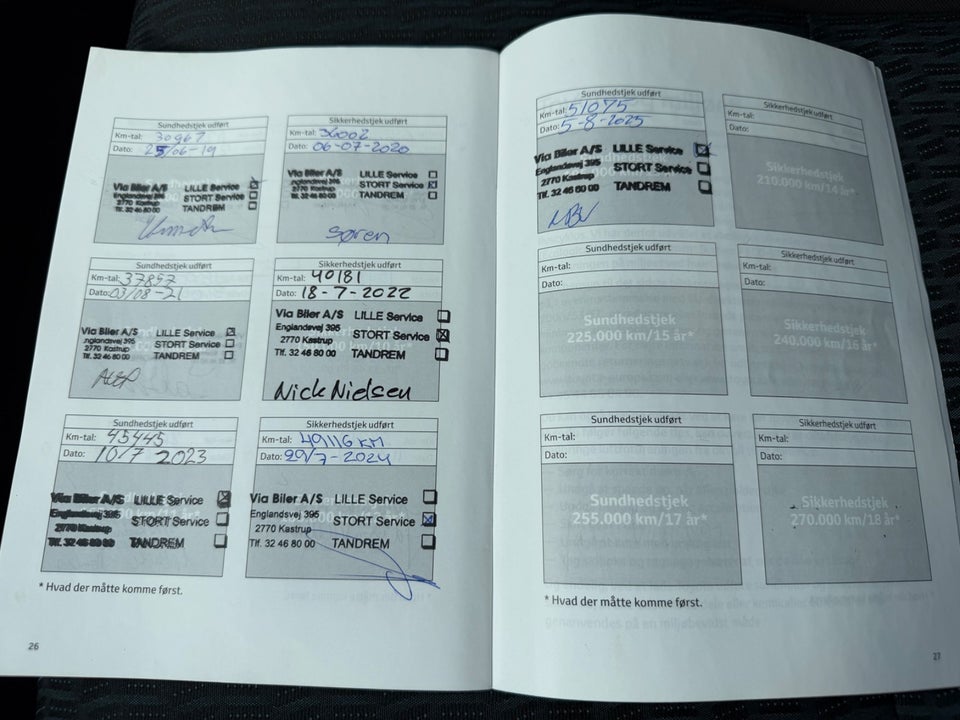 Sundhedstjek udført
Km-tal: 30967
Dato: 25/06-19
Via Biler A/S LILLE Service
STORT Service
2770 Kastrup TANDREM
Tlf. 32 46 80 00
Sikkerhedstjek udført
Km-tal: 36002
Dato: 06-07-2020
Via Biler A/S LILLE Service
Englandsvej 395 STORT Service
2770 Kastrup TANDREM
Tlf. 32 46 80 00
Søren
Sundhedstjek udført
Km-tal: 37857
Dato: 03/08-21
Via Biler A/S LILLE Service
Englandsvej 395 STORT Service
2770 Kastrup
Tlf. 32 46 80 00 TANDREM
Sikkerhedstjek udført
Km-tal: 40181
Dato: 18-7-2022
Via Biler A/S LILLE Service
Englandsvej 395 STORT Service
2770 Kastrup
Tlf. 32 46 80 00 TANDREM
Nick Nielsen
Sundhedstjek udført
Km-tal: 45445
Dato: 10/7 2023
Via Biler A/S LILLE Service
Englandsvej 395 STORT Service
2770 Kastrup
Tlf. 32 46 80 00 TANDREM
Sikkerhedstjek udført
Km-tal: 49116 KM
Dato: 29/7-2024
Via Biler A/S LILLE Service
Englandsvej 395 STORT Service
2770 Kastrup
Tlf. 32 46 80 00 TANDREM
* Hvad der måtte komme først.
26
Sundhedstjek udført
Km-tal: 51075
Dato: 5-8-2025
Via Biler A/S LILLE Service
Englandsvej 395 STORT Service
2770 Kastrup
Tlf. 32 46 80 00 TANDREM
Sikkerhedstjek udført
Km-tal:
Dato:
Sikkerhedstjek
210.000 km/14 år*
Sundhedstjek udført
Km-tal:
Dato:
Sundhedstjek
225.000 km/15 år*
Sikkerhedstjek udført
Km-tal:
Dato:
Sikkerhedstjek
240.000 km/16 år*
Sundhedstjek udført
Km-tal:
Dato:
Sundhedstjek
255.000 km/17 år*
Sikkerhedstjek udført
Km-tal:
Dato:
Sikkerhedstjek
270.000 km/18 år*
* Hvad der måtte komme først.
27